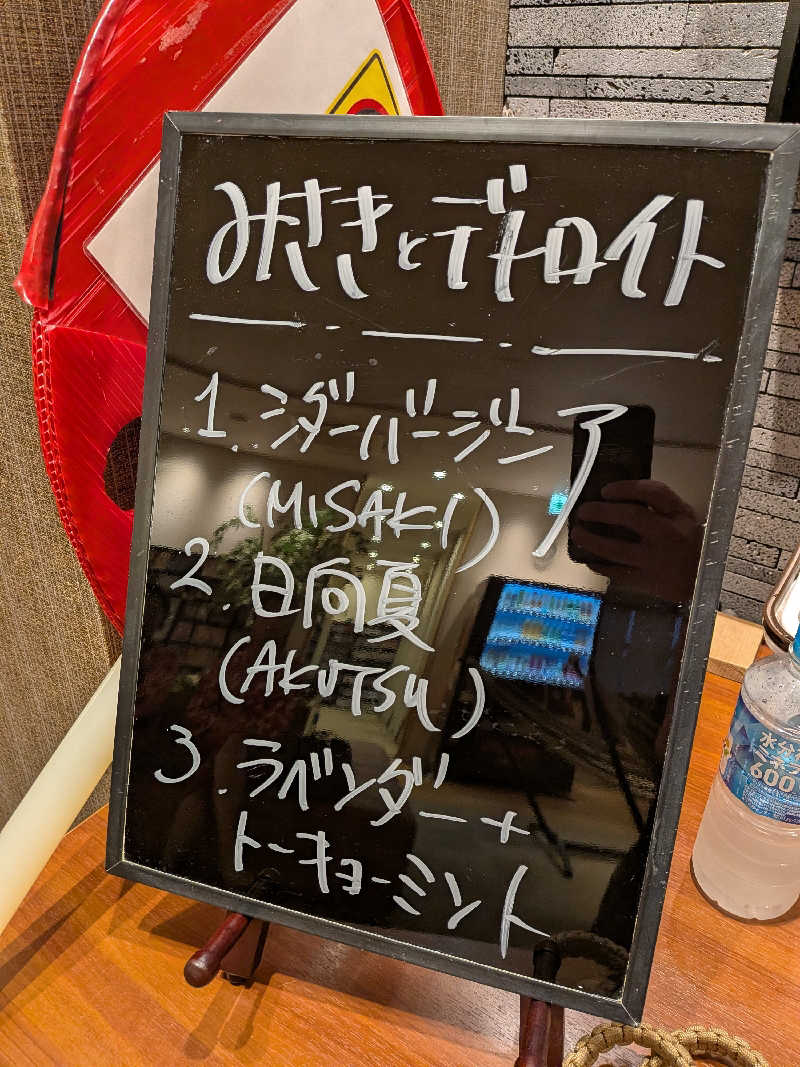 みさきとデトロイト
1. シダーバージニア
(MISAKI)
2. 日向夏
(AKUTSU)
3. ラベンダー+
トーキョーミント
水分
600